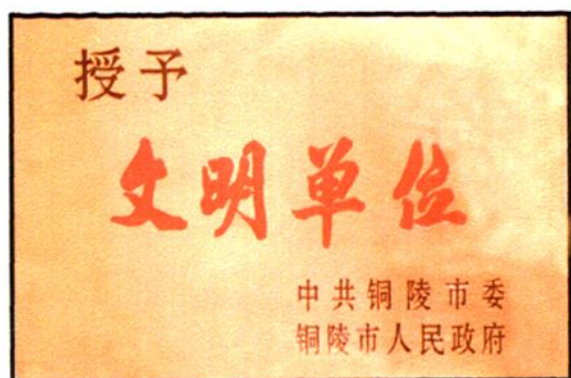 授予
文明单位
中共铜陵市委
铜陵市人民政府